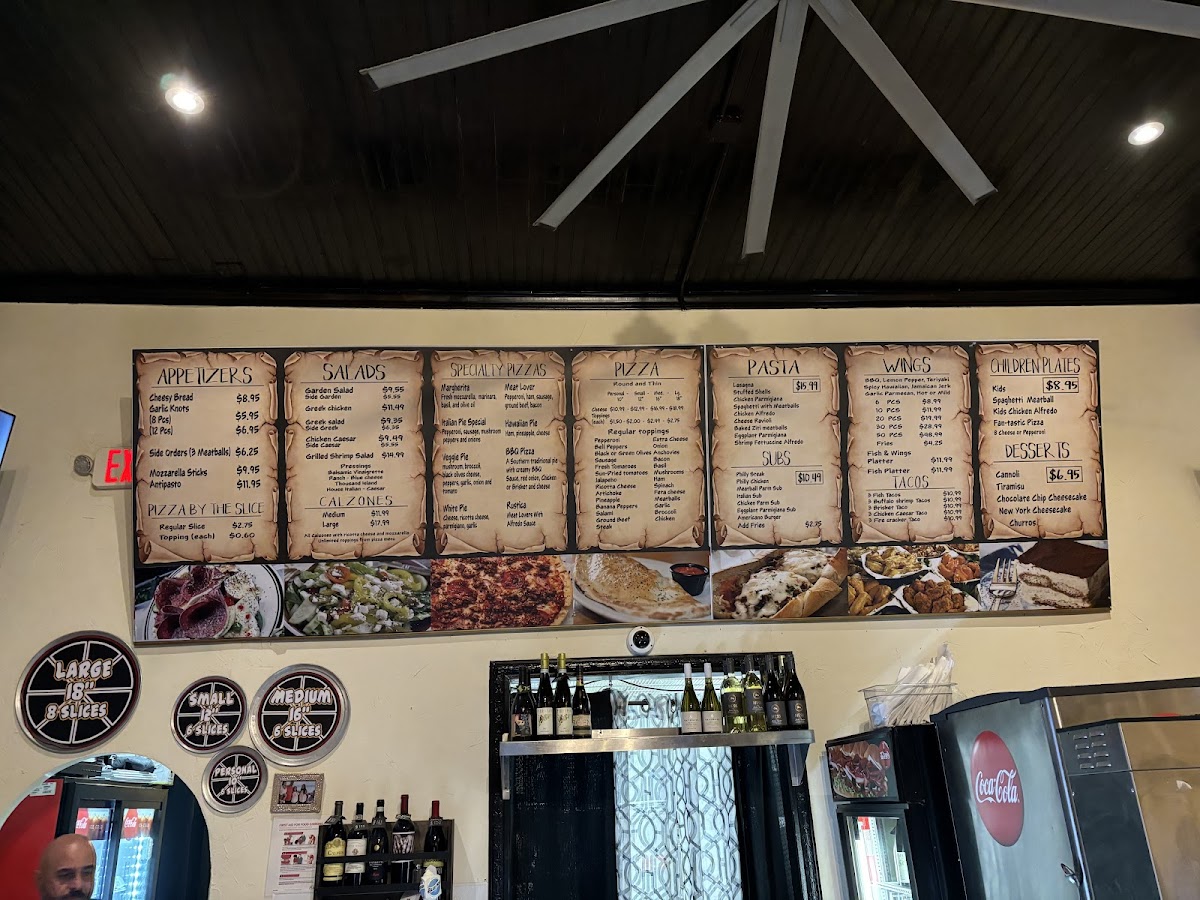 APPETIZERS
Cheesy Bread $8.95
Garlic Knots
(8 Pcs) $5.95
(12 Pcs) $6.95
Side Orders (3 Meatballs) $6.25
Mozzarella Sticks $9.95
Antipasto $11.95
PIZZA BY THE SLICE
Regular Slice $2.75
Topping (each) $0.60
SALADS
Garden Salad $9.55
Side Garden
Greek chicken $11.49
Greek salad
Side Greek
Chicken Caesar $9.49
Side Caesar
Grilled Shrimp Salad $14.99
Dressings
Balsamic Vinaigrette
Ranch - Blue cheese
Thousand Island
House Italian - Caesar
CALZONES
Medium $11.99
Large $17.99
All Calzones with ricotta cheese and mozzarella
Unlimited toppings from pizza menu
SPECIALTY PIZZAS
Margherita
Fresh mozzarella, marinara,
basil, and olive oil
Italian Pie Special
Pepperoni, sausage, mushroom
peppers and onions
Veggie Pie
mushroom, broccoli,
black olives cheese,
peppers, garlic, onion and
tomato
White Pie
Cheese, ricotta cheese,
parmigiano, garlic
Meat Lover
Pepperoni, ham, sausage,
ground beef, bacon
Hawaiian Pie
Ham, pineapple, cheese
BBQ Pizza
A Southern traditional pie
with creamy BBQ
Sauce, red onion, Chicken
or Brisket and cheese
Rustica
Meat Lovers With
Alfredo Sauce
PIZZA
Round and Thin
Personal - Small - Med. - Lg.
10" 12" 16" 18"
Cheese $10.99 - $12.99 - $16.99 - $18.99
Toppings
(each) $1.50 - $2.00 - $2.91 - $2.75
Regular Toppings
Pepperoni
Bell Peppers
Black or Green Olives
Sausage
Fresh Tomatoes
Sun-Dried tomatoes
Jalapeño
Ricotta Cheese
Artichoke
Pineapple
Banana Peppers
Salami
Ground Beef
Steak
Extra Cheese
Onion
Anchovies
Bacon
Basil
Mushrooms
Ham
Spinach
Feta cheese
Meatballs
Garlic
Broccoli
Chicken
PASTA
$15.99
Lasagna
Stuffed Shells
Chicken Parmigiana
Spaghetti with Meatballs
Chicken Alfredo
Cheese Ravioli
Baked Ziti meatballs
Eggplant Parmigiana
Shrimp Fettuccine Alfredo
SUBS
$10.49
Philly Steak
Philly Chicken
Meatball Parm Sub
Italian Sub
Chicken Parm Sub
Eggplant Parmigiana Sub
Americano Burger
Add Fries $2.75
WINGS
BBQ, Lemon Pepper, Teriyaki
Spicy Hawaiian, Jamaican Jerk
Garlic Parmesan, Hot or Mild
6 PCS $8.99
10 PCS $11.99
20 PCS $19.99
30 PCS $28.99
50 PCS $48.99
Fries $4.25
Fish & Wings
Platter $11.99
Fish Platter $11.99
TACOS
3 Fish Tacos $10.99
3 Buffalo shrimp Tacos $10.99
3 Brisket Taco $10.99
3 Chicken Caesar Taco $10.99
3 Fire cracker Taco $10.99
CHILDREN PLATES
Kids $8.95
Spaghetti Meatball
Kids Chicken Alfredo
Fan-tastic Pizza
8 Cheese or Pepperoni
DESSERTS
Cannoli $6.95
Tiramisu
Chocolate Chip Cheesecake
New York Cheesecake
Churros
EX
LARGE
18"
8 SLICES
SMALL
12"
6 SLICES
MEDIUM
16"
6 SLICES
PERSONAL
10"
SLICES
Coca-Cola